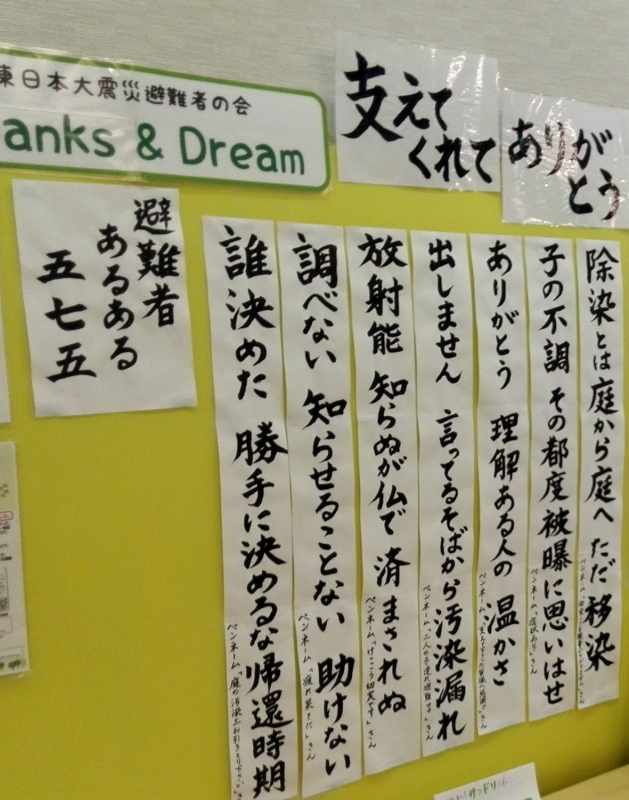 東日本大震災避難者の会
anks & Dream
支えて
くれて
ありが
とう
避難者
あるある
五七五
除染とは 庭から庭へ ただ移染
子の不調 その都度被曝に 思いはせ
ペンネーム「症状あり」さん
ありがとう 理解ある人の 温かさ
出しません 言ってるそばから 汚染漏れ
ペンネーム「二人の子連れ避難ママ」さん
放射能 知らぬが仏で 済まされぬ
ペンネーム「けっこう切実です」さん
調べない 知らせることない 助けない
ペンネーム「疲れ果てた」さん
誰決めた 勝手に決めるな 帰還時期
ペンネーム「庭の汚染土お引きとり下さい」さん